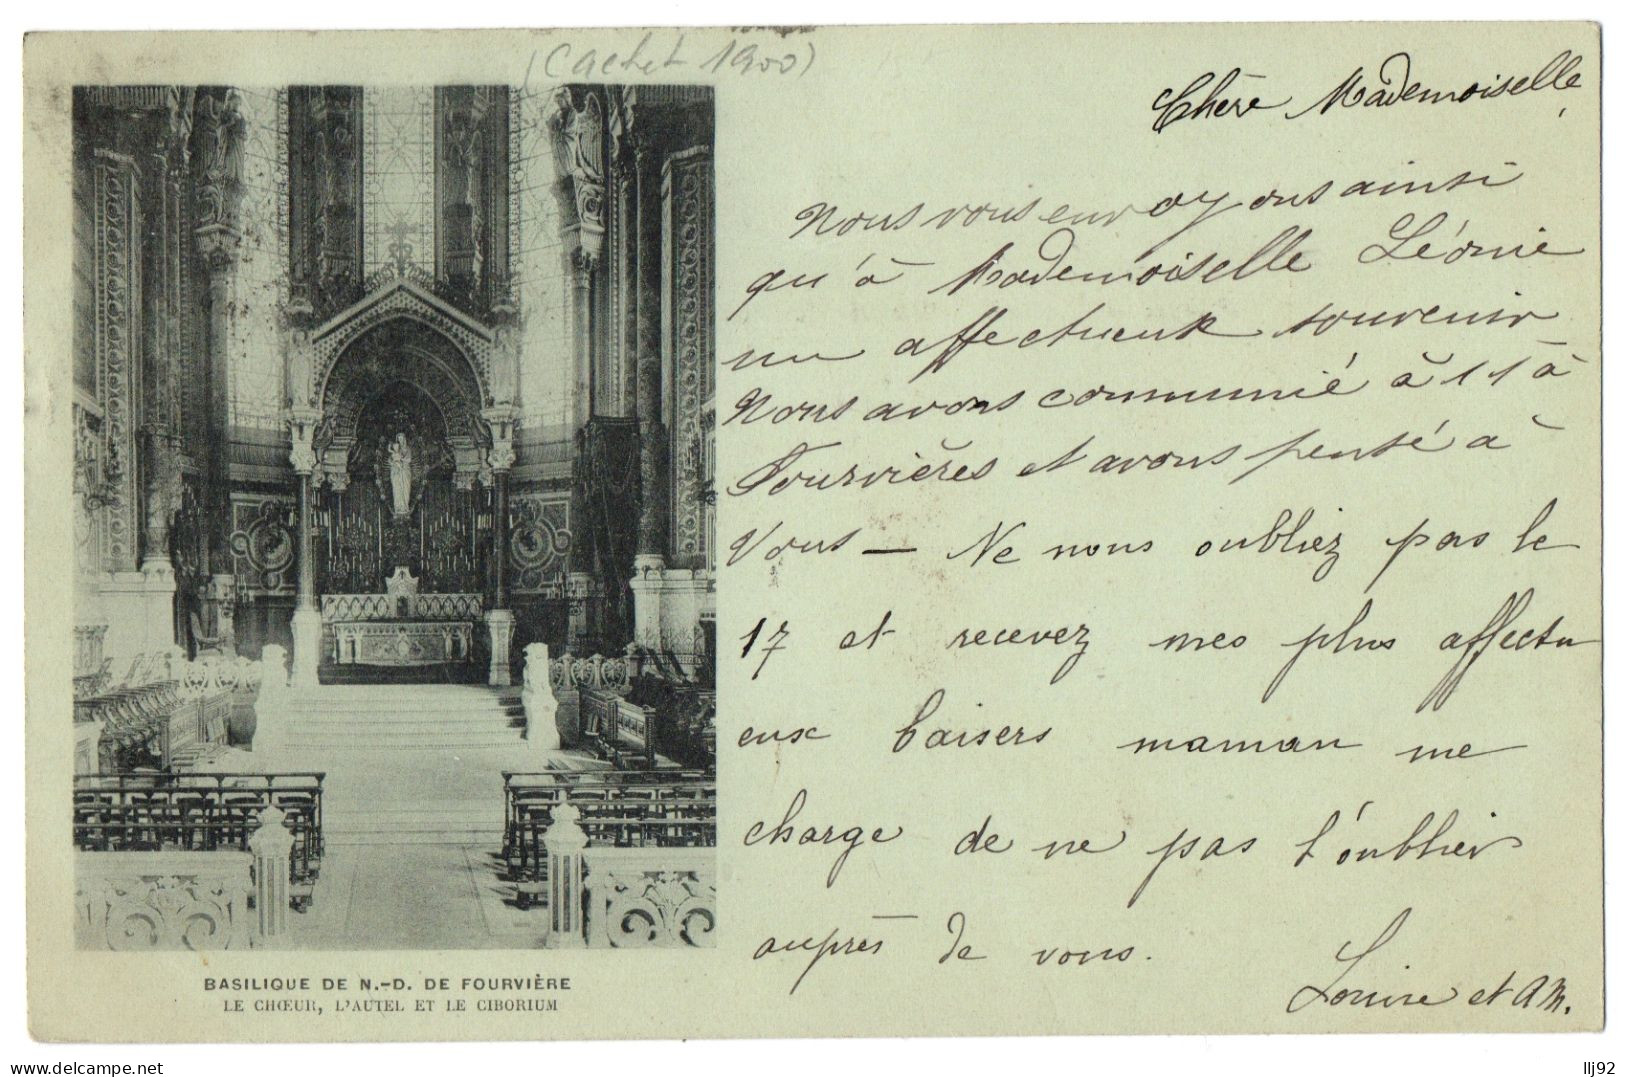 (Cachet 1900)
Chère Mademoiselle,
Nous vous envoyons ainsi
qu'à Mademoiselle Léonie
un affectueux souvenir
Nous avons communié à 11 à
Fourvières et avons pensé à
Vous — Ne nous oubliez pas le
17 et recevez mes plus affectu
eux baisers maman me
charge de ne pas l'oublier
auprès de vous.
Louise et AM.
BASILIQUE DE N.-D. DE FOURVIÈRE
LE CHŒUR, L'AUTEL ET LE CIBORIUM
www.delcampe.net
llj92